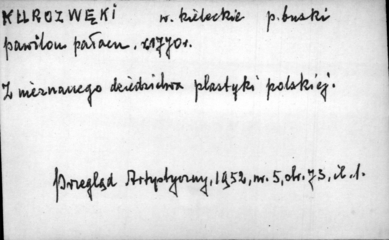 KUROZWĘKI w. kieleckie p. buski
pawilon pałacu. z 1770 r.
Z nieznanego dziedzictwa plastyki polskiej.
Przegląd Artystyczny, 1952, nr. 5, str. 73, il. 1.